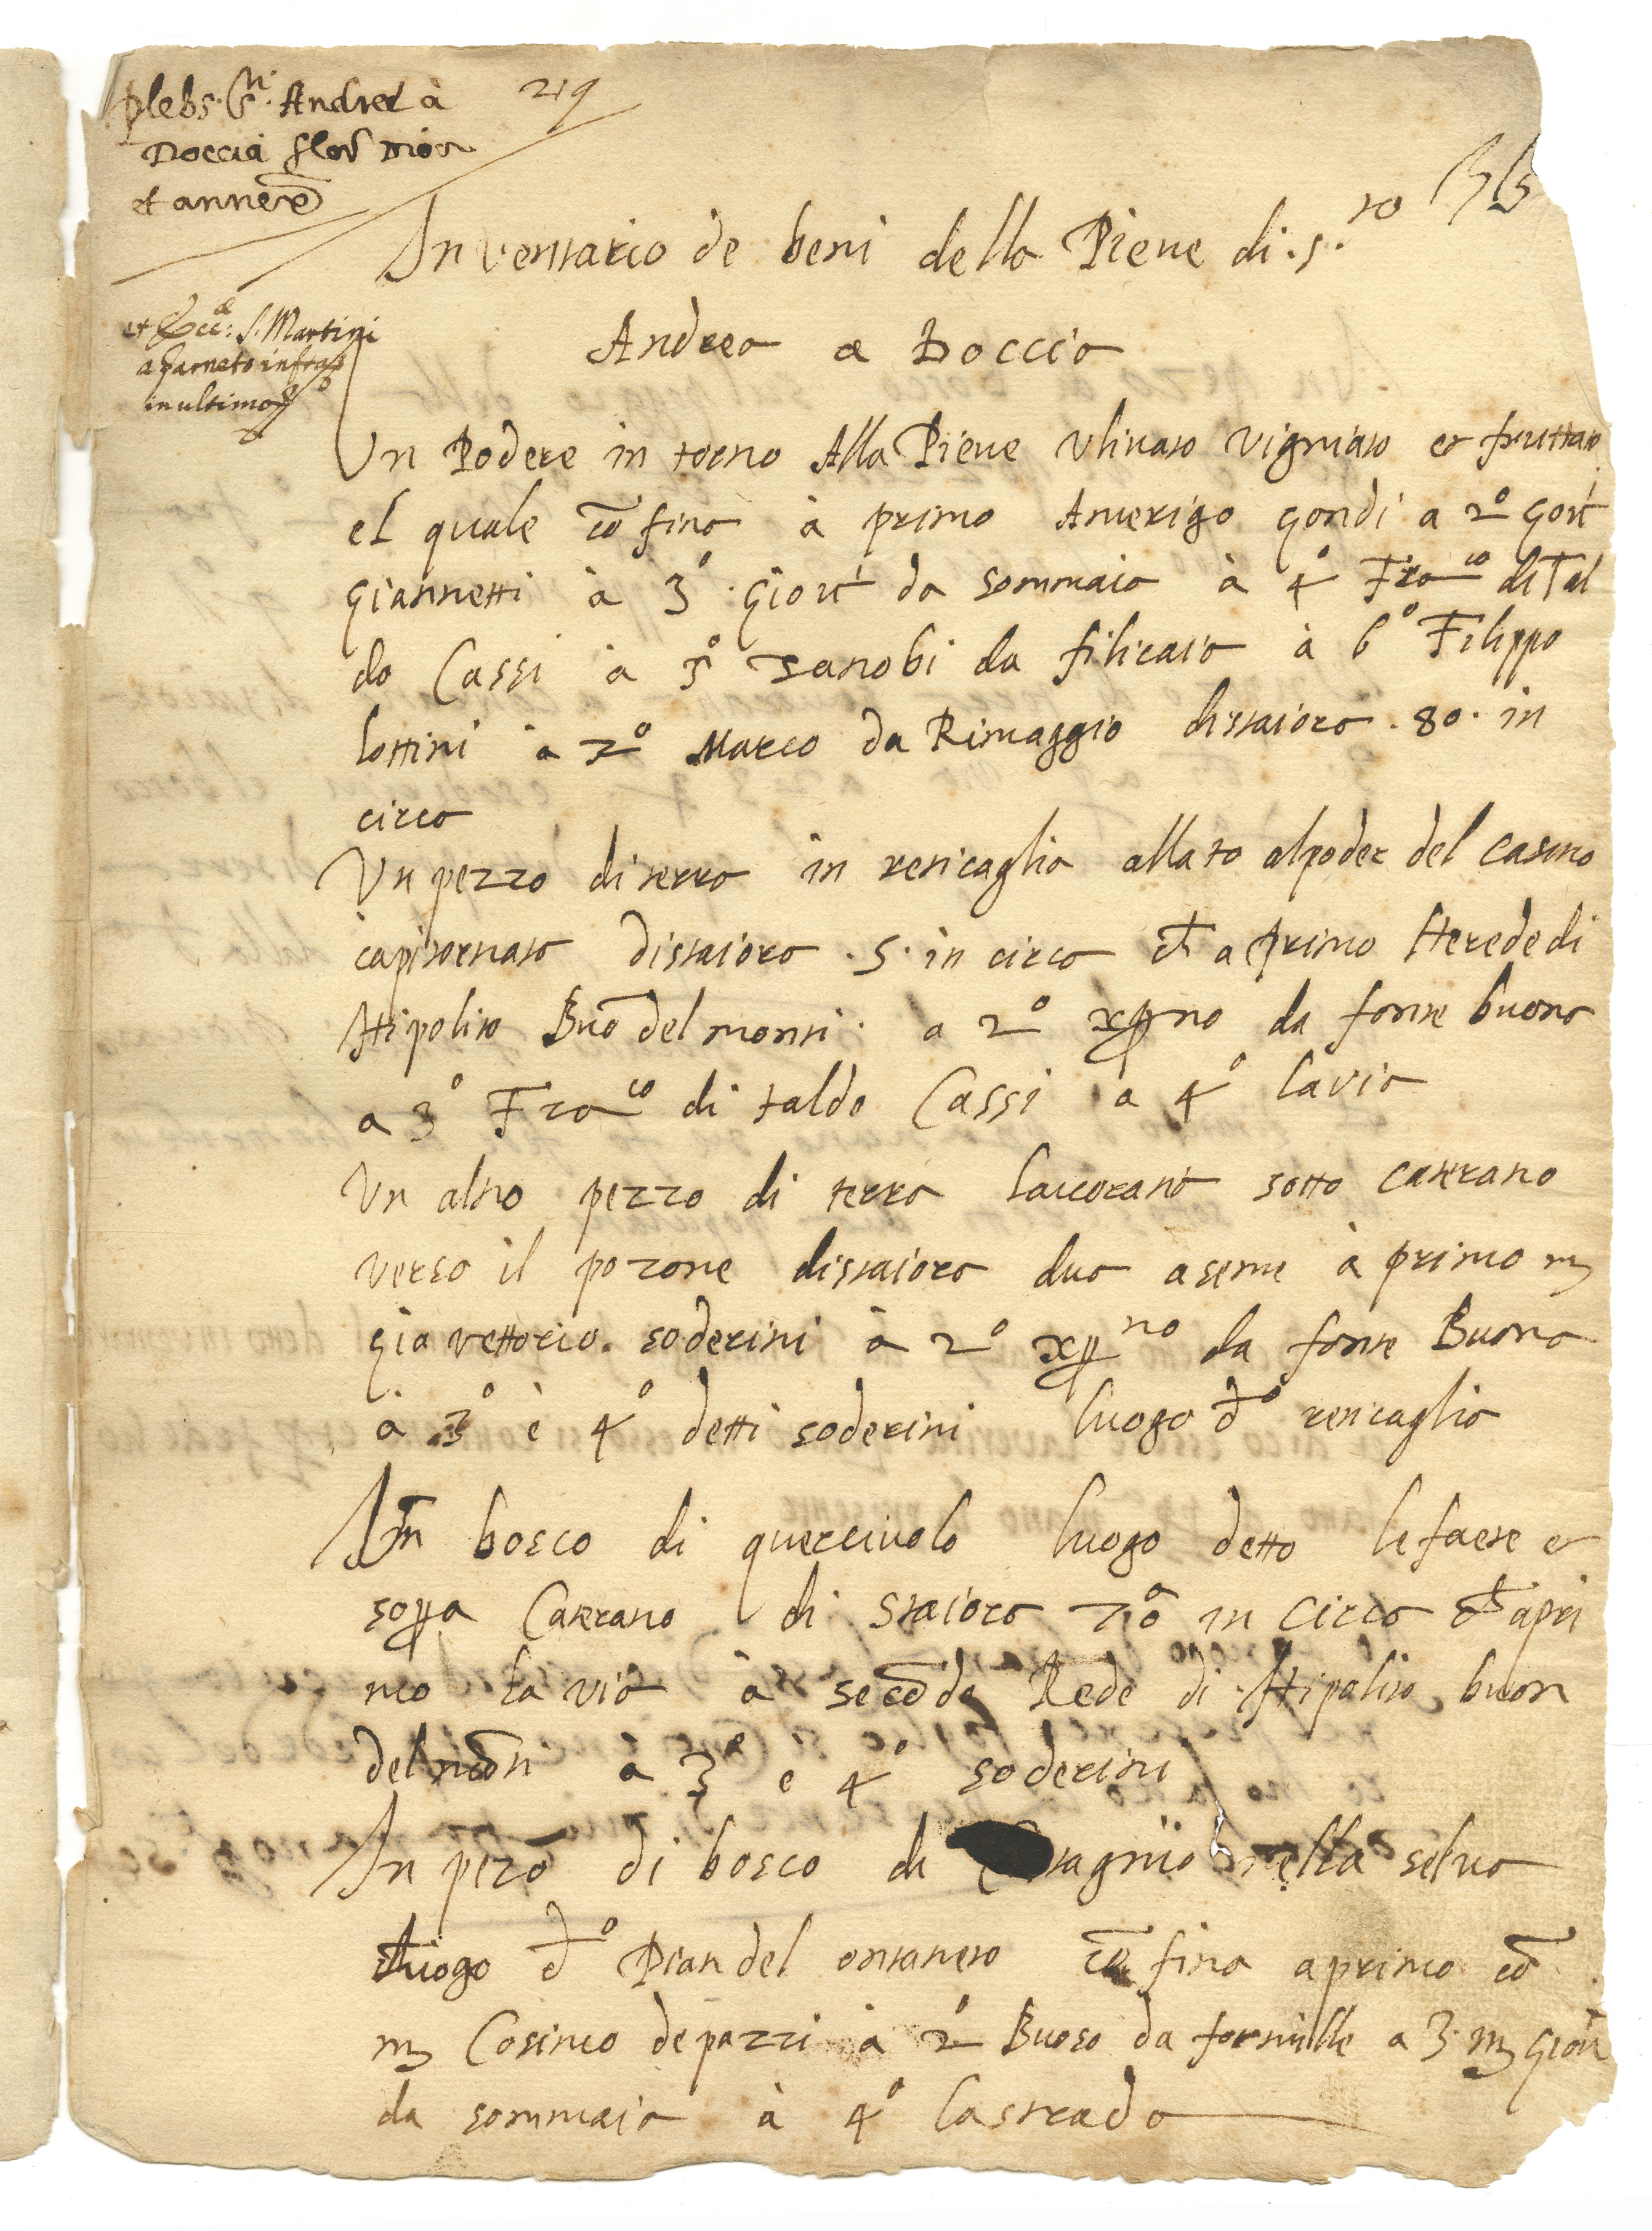 plebs. Sti. Andreæ à
Doccia flor̃ Dioc
et annexe
219
et Eccæ: S. Martini
a farneto infra
in ultimo
Inventario de beni della Pieve di .s.to
Andrea a Doccia
Un Podere in torno Alla Pieve Ulivato vignato et fruttato
el quale cõfina à primo Amerigo gondi a 2o Giov̄
giannetti à 3o. Giov̄ da sommaia à 4o Fraco di Tal
do Cassi à 5o Zanobi da filicaia à 6o Filippo
lottini à 7o Marco da Rimaggio distaiora .80. in
circa
Un pezzo di terra in resicaglia allato al poder del casino
capitornato distaiora .5. in circa cf̄ a primo Herede di
Hipolito Buõdelmonti. a 2o xp̄no da fonte buona
a 3o Fraco di taldo Cassi a 4o la via
Un altro pezzo di terra lavorata sotto caterano
verso il pozone distaiora dua a seme à primo mʒ
gia vettorio. soderini à 2o xp̄no da fonte Buona
à 3o è 4o detti soderini luogo do resicaglia
Un bosco di quercivolo luogo detto le faete et
sopra Caterano di staiora 70 in circa cf̄ a pri
mo la via à secõdo Rede di Hipolito buon
delmõti à 3o e 4o soderini
Un pezo di bosco di Castagnio nella selva
luogo do Pian del ontaneto cõfina a primo cõ
mʒ Cosimo de pazzi à 2o Buoso da fornille a 3. mʒ Giov̄
da sommaia à 4o la strada